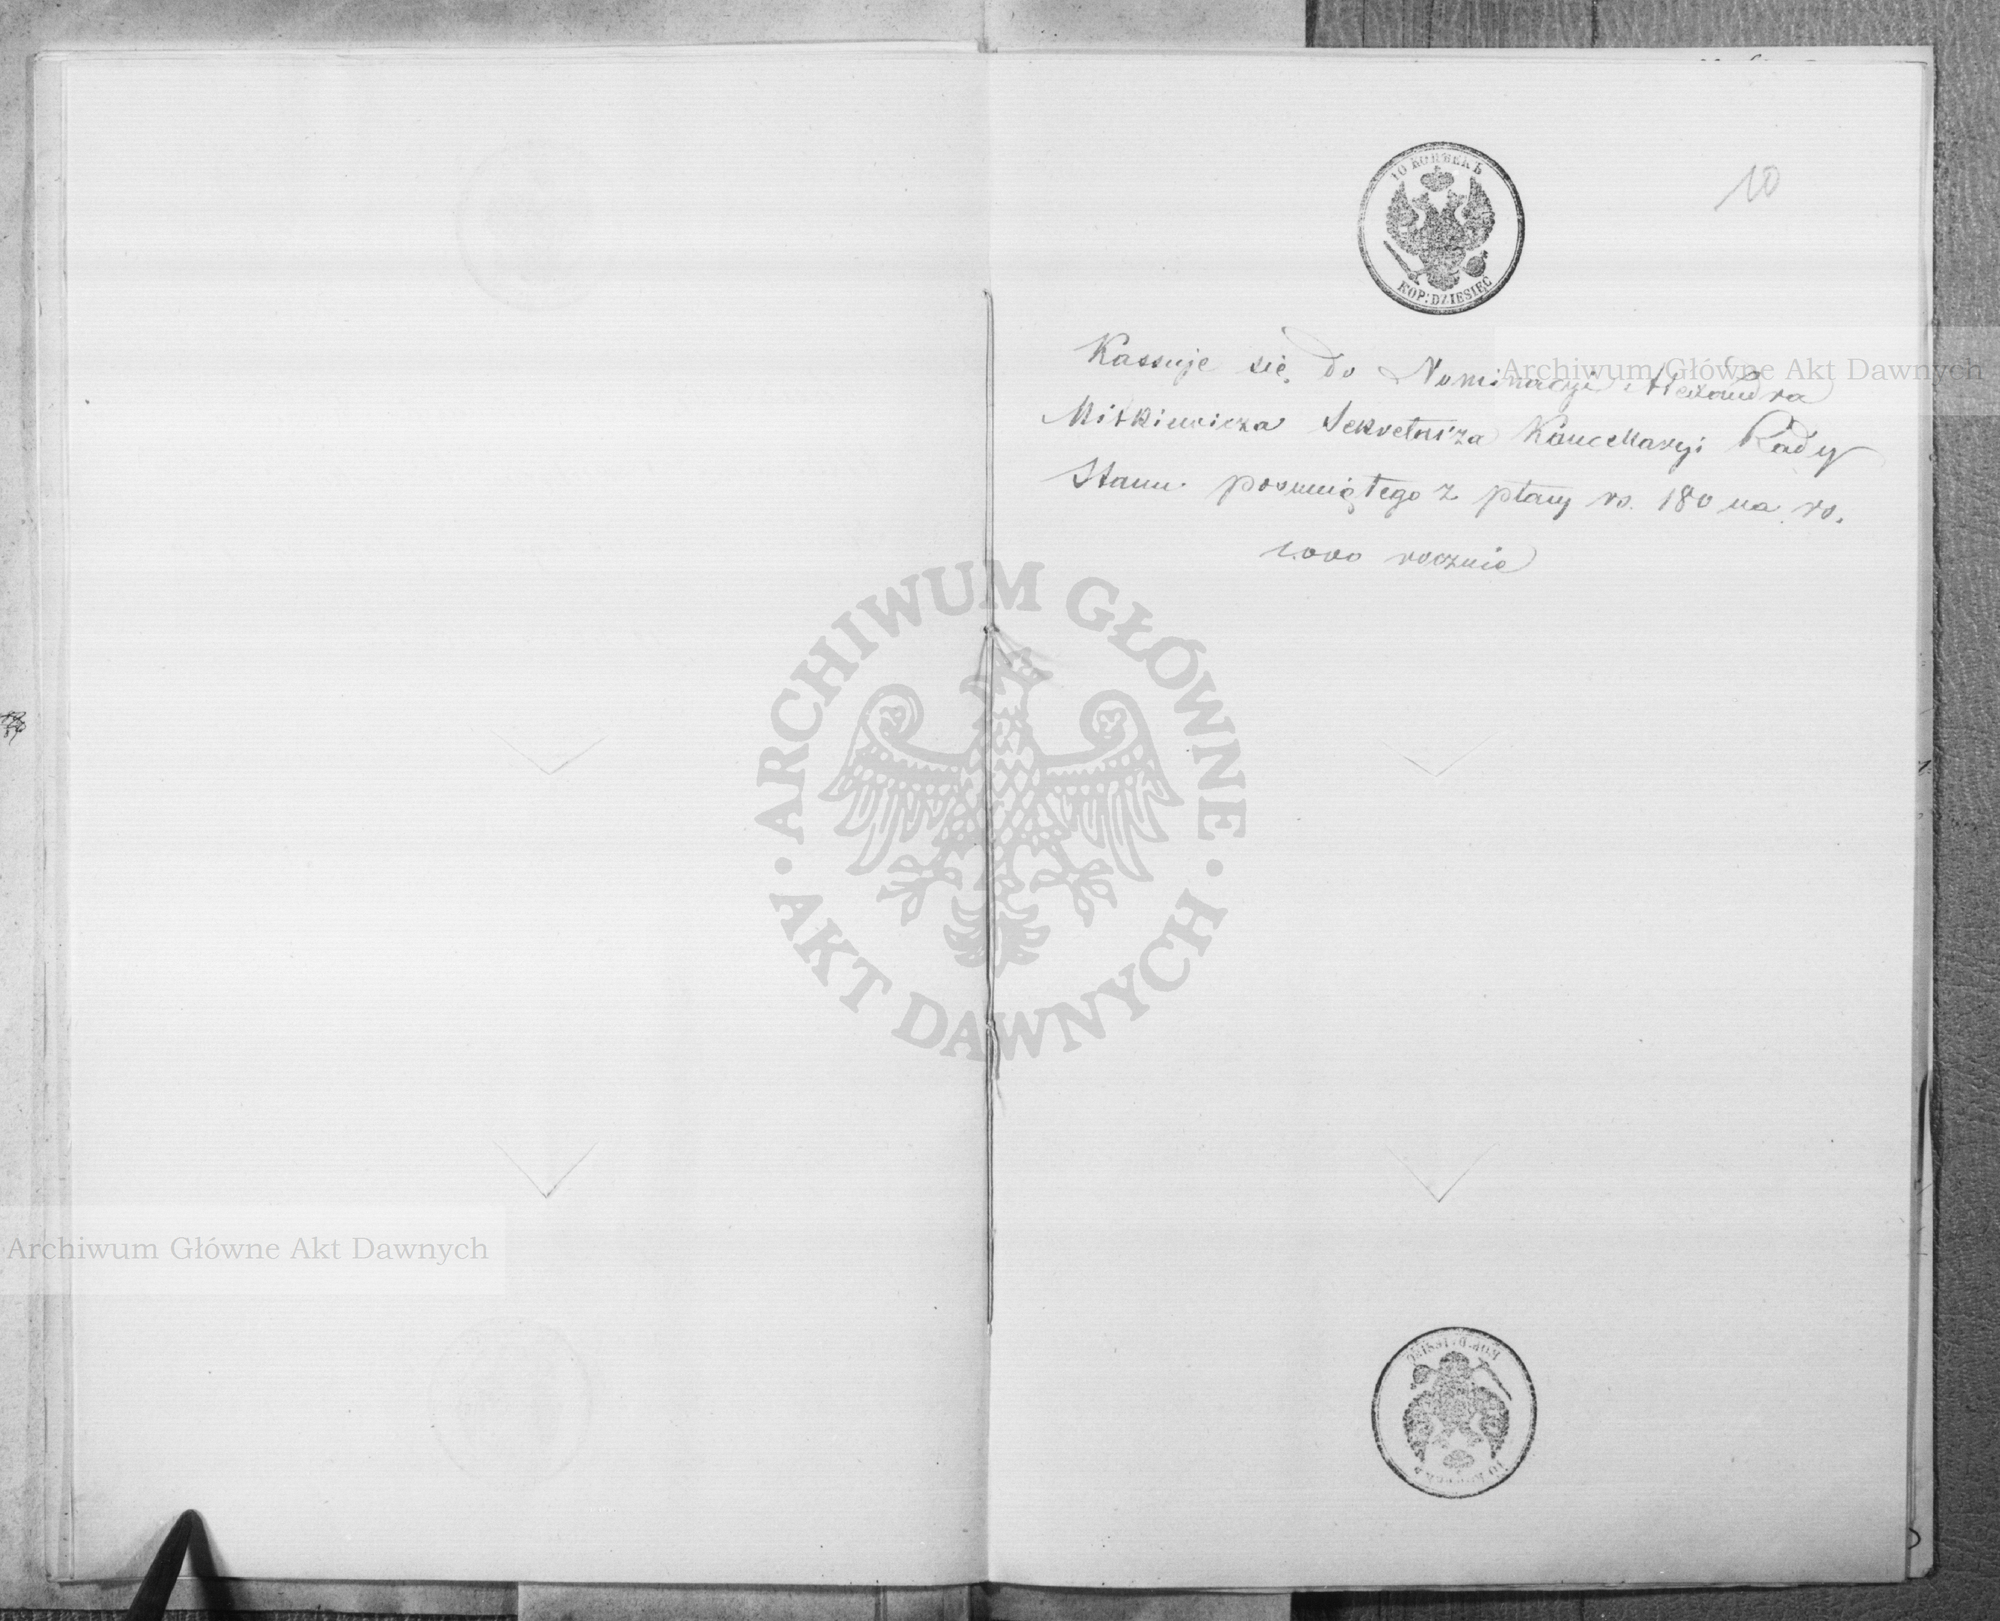 10 КОПѢЕКЪ
KOP: DZIESIĘC
10
Kassuje się do Nominacyi Alexandra
Mitkiewicza Sekretarza Kancellaryi Rady
Stanu posuniętego z płacy rs. 180 na rs.
1.000 rocznie
ARCHIWUM GŁÓWNE
AKT DAWNYCH
Archiwum Główne Akt Dawnych
Archiwum Główne Akt Dawnych
10 КОПѢЕКЪ
KOP: DZIESIĘC